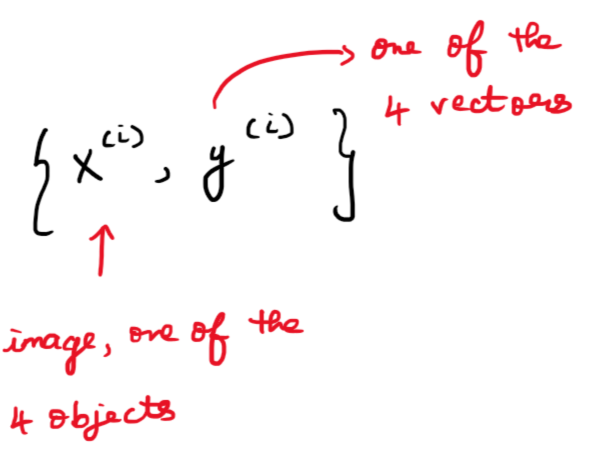 one of the
4 vectors
{ x^(i), y^(i) }
image, one of the
4 objects